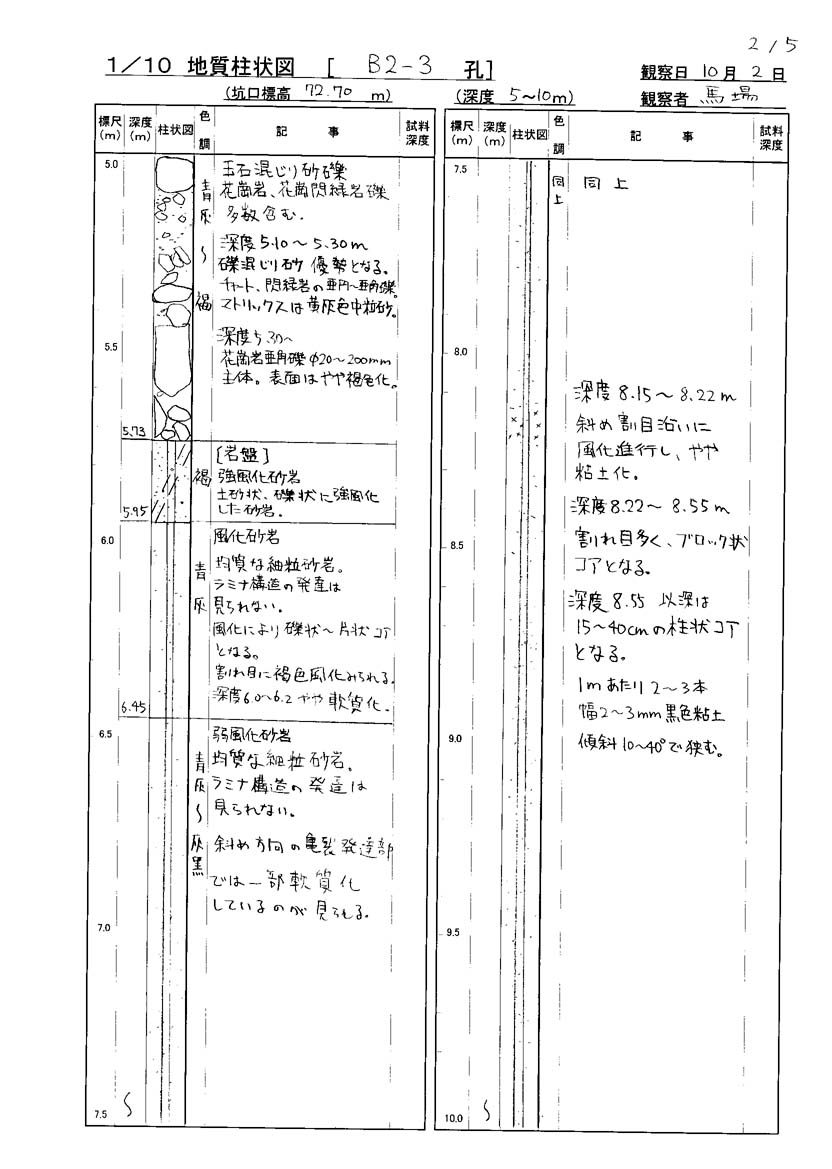 2/5
1/10 地質柱状図 [ B2-3 孔]
観察日 10月 2日
(坑口標高 72.70 m)
(深度 5~10m)
観察者 馬場
標尺(m) 深度(m) 柱状図 色調 記事 試料深度
5.0
青灰~褐
玉石混じり砂礫
花崗岩、花崗閃緑岩礫
多数含む.
深度5.10~5.30m
礫混じり砂 優勢となる。
チャート、閃緑岩の亜円~亜角礫。
マトリックスは黄灰色中粒砂。
5.5
深度5.30~
花崗岩亜角礫φ20~200mm
主体。表面はやや褐色化。
5.73
褐
[岩盤]
強風化砂岩
土砂状、礫状に強風化
した砂岩.
5.95
6.0
青灰
風化砂岩
均質な細粒砂岩。
ラミナ構造の発達は
見られない。
風化により礫状~片状コア
となる。
割れ目に褐色風化みられる.
深度6.0~6.2 やや軟質化.
6.45
6.5
青灰~灰黒
弱風化砂岩
均質な細粒砂岩。
ラミナ構造の発達は
見られない。
斜め方向の亀裂発達部
では一部軟質化
しているのが見られる.
7.0
7.5
標尺(m) 深度(m) 柱状図 色調 記事 試料深度
7.5
同上
同上
8.0
深度8.15~8.22m
斜め割目沿いに
風化進行し、やや
粘土化。
深度8.22~8.55m
割れ目多く、ブロック状
コアとなる。
8.5
深度8.55 以深は
15~40cmの柱状コア
となる。
1mあたり2~3本
幅2~3mm黒色粘土
傾斜10~40°で狭む。
9.0
9.5
10.0